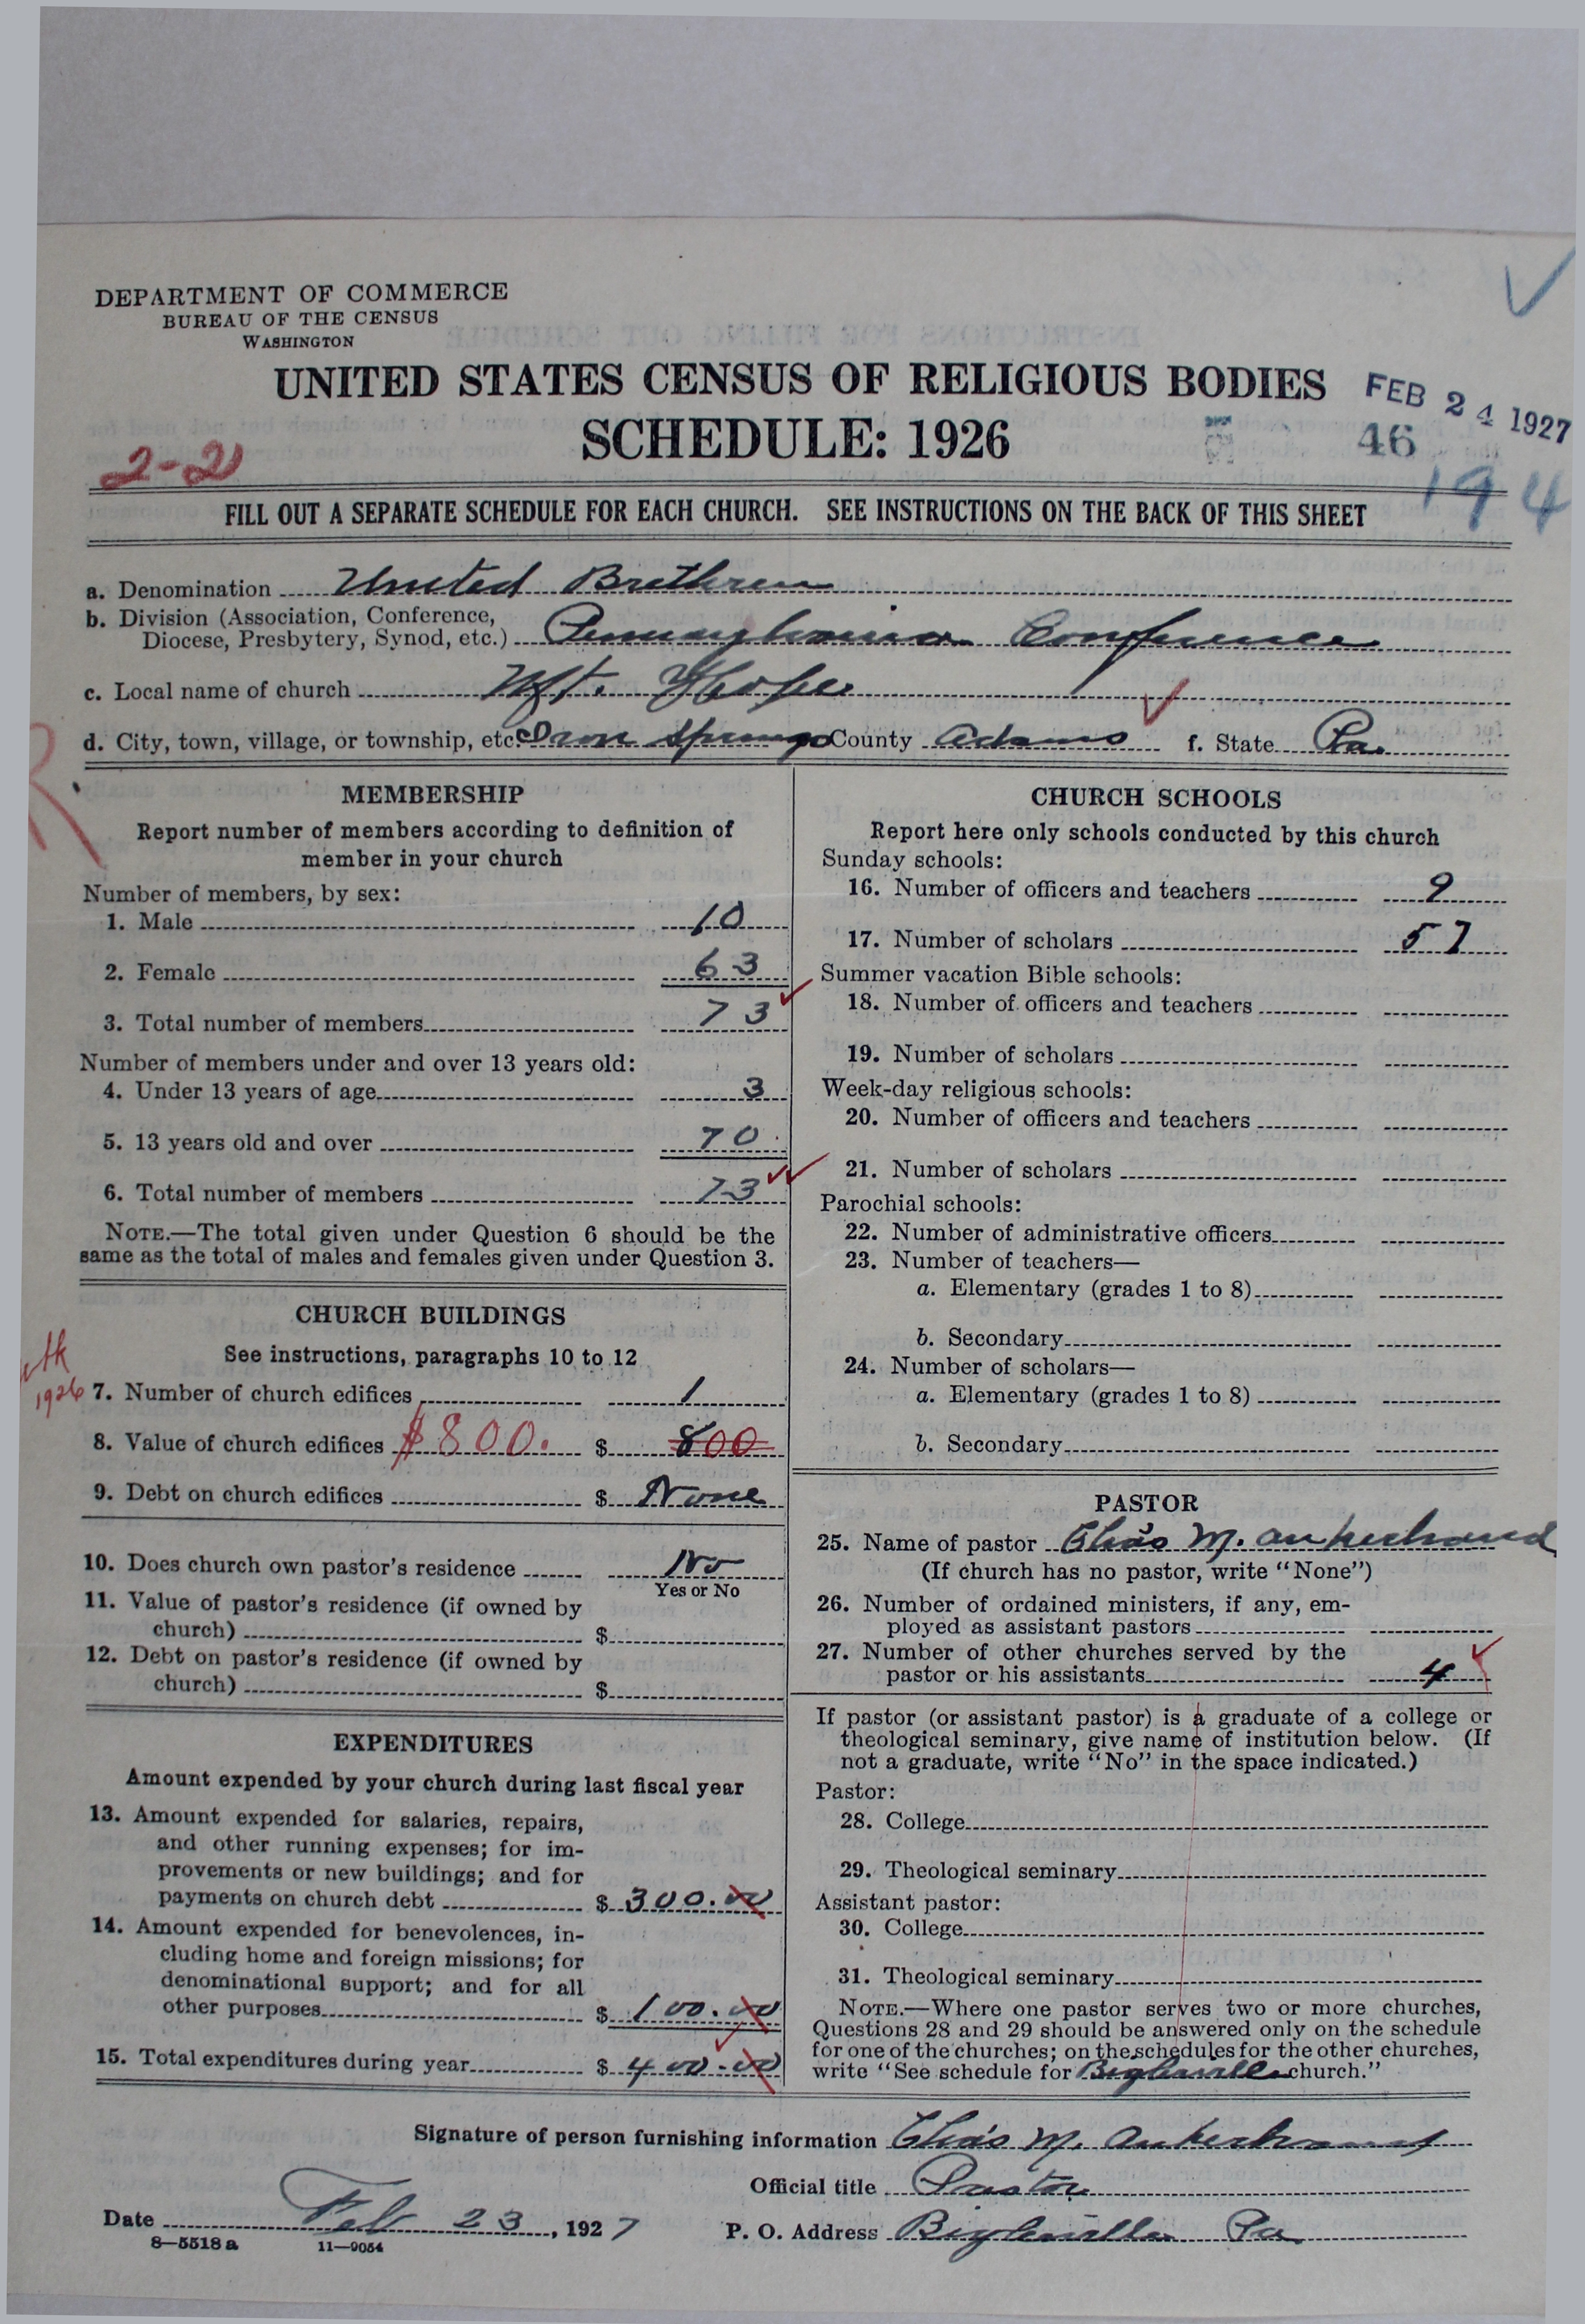 DEPARTMENT OF COMMERCE
BUREAU OF THE CENSUS
WASHINGTON
UNITED STATES CENSUS OF RELIGIOUS BODIES
FEB 24 1927
SCHEDULE: 1926
46
2-21
194
FILL OUT A SEPARATE SCHEDULE FOR EACH CHURCH. SEE INSTRUCTIONS ON THE BACK OF THIS SHEET
a. Denomination United Brethren
b. Division (Association, Conference,
Diocese, Presbytery, Synod, etc.) Pennsylvania Conference
c. Local name of church Mt. Hope
d. City, town, village, or township, etc. Iron Springs County Adams f. State Pa.
R
MEMBERSHIP
Report number of members according to definition of
member in your church
Number of members, by sex:
1. Male 10
2. Female 63
3. Total number of members 73
Number of members under and over 13 years old:
4. Under 13 years of age 3
5. 13 years old and over 70
6. Total number of members 73
NOTE.—The total given under Question 6 should be the
same as the total of males and females given under Question 3.
CHURCH BUILDINGS
See instructions, paragraphs 10 to 12
1926
7. Number of church edifices 1
8. Value of church edifices $800. $ 800
9. Debt on church edifices $ None
10. Does church own pastor's residence No
Yes or No
11. Value of pastor's residence (if owned by
church) $
12. Debt on pastor's residence (if owned by
church) $
EXPENDITURES
Amount expended by your church during last fiscal year
13. Amount expended for salaries, repairs,
and other running expenses; for im-
provements or new buildings; and for
payments on church debt $ 300.00
14. Amount expended for benevolences, in-
cluding home and foreign missions; for
denominational support; and for all
other purposes $ 100.00
15. Total expenditures during year $ 400.00
CHURCH SCHOOLS
Report here only schools conducted by this church
Sunday schools:
16. Number of officers and teachers 9
17. Number of scholars 57
Summer vacation Bible schools:
18. Number of officers and teachers
19. Number of scholars
Week-day religious schools:
20. Number of officers and teachers
21. Number of scholars
Parochial schools:
22. Number of administrative officers
23. Number of teachers—
a. Elementary (grades 1 to 8)
b. Secondary
24. Number of scholars—
a. Elementary (grades 1 to 8)
b. Secondary
PASTOR
25. Name of pastor Elias M. Aukerbrand
(If church has no pastor, write "None")
26. Number of ordained ministers, if any, em-
ployed as assistant pastors
27. Number of other churches served by the
pastor or his assistants 4
If pastor (or assistant pastor) is a graduate of a college or
theological seminary, give name of institution below. (If
not a graduate, write "No" in the space indicated.)
Pastor:
28. College
29. Theological seminary
Assistant pastor:
30. College
31. Theological seminary
NOTE.—Where one pastor serves two or more churches,
Questions 28 and 29 should be answered only on the schedule
for one of the churches; on the schedules for the other churches,
write "See schedule for Biglerville church."
Signature of person furnishing information Elias M. Aukerbrand
Official title Pastor
Date Feb 23, 1927 P. O. Address Biglerville Pa
8—5518 a 11—9054